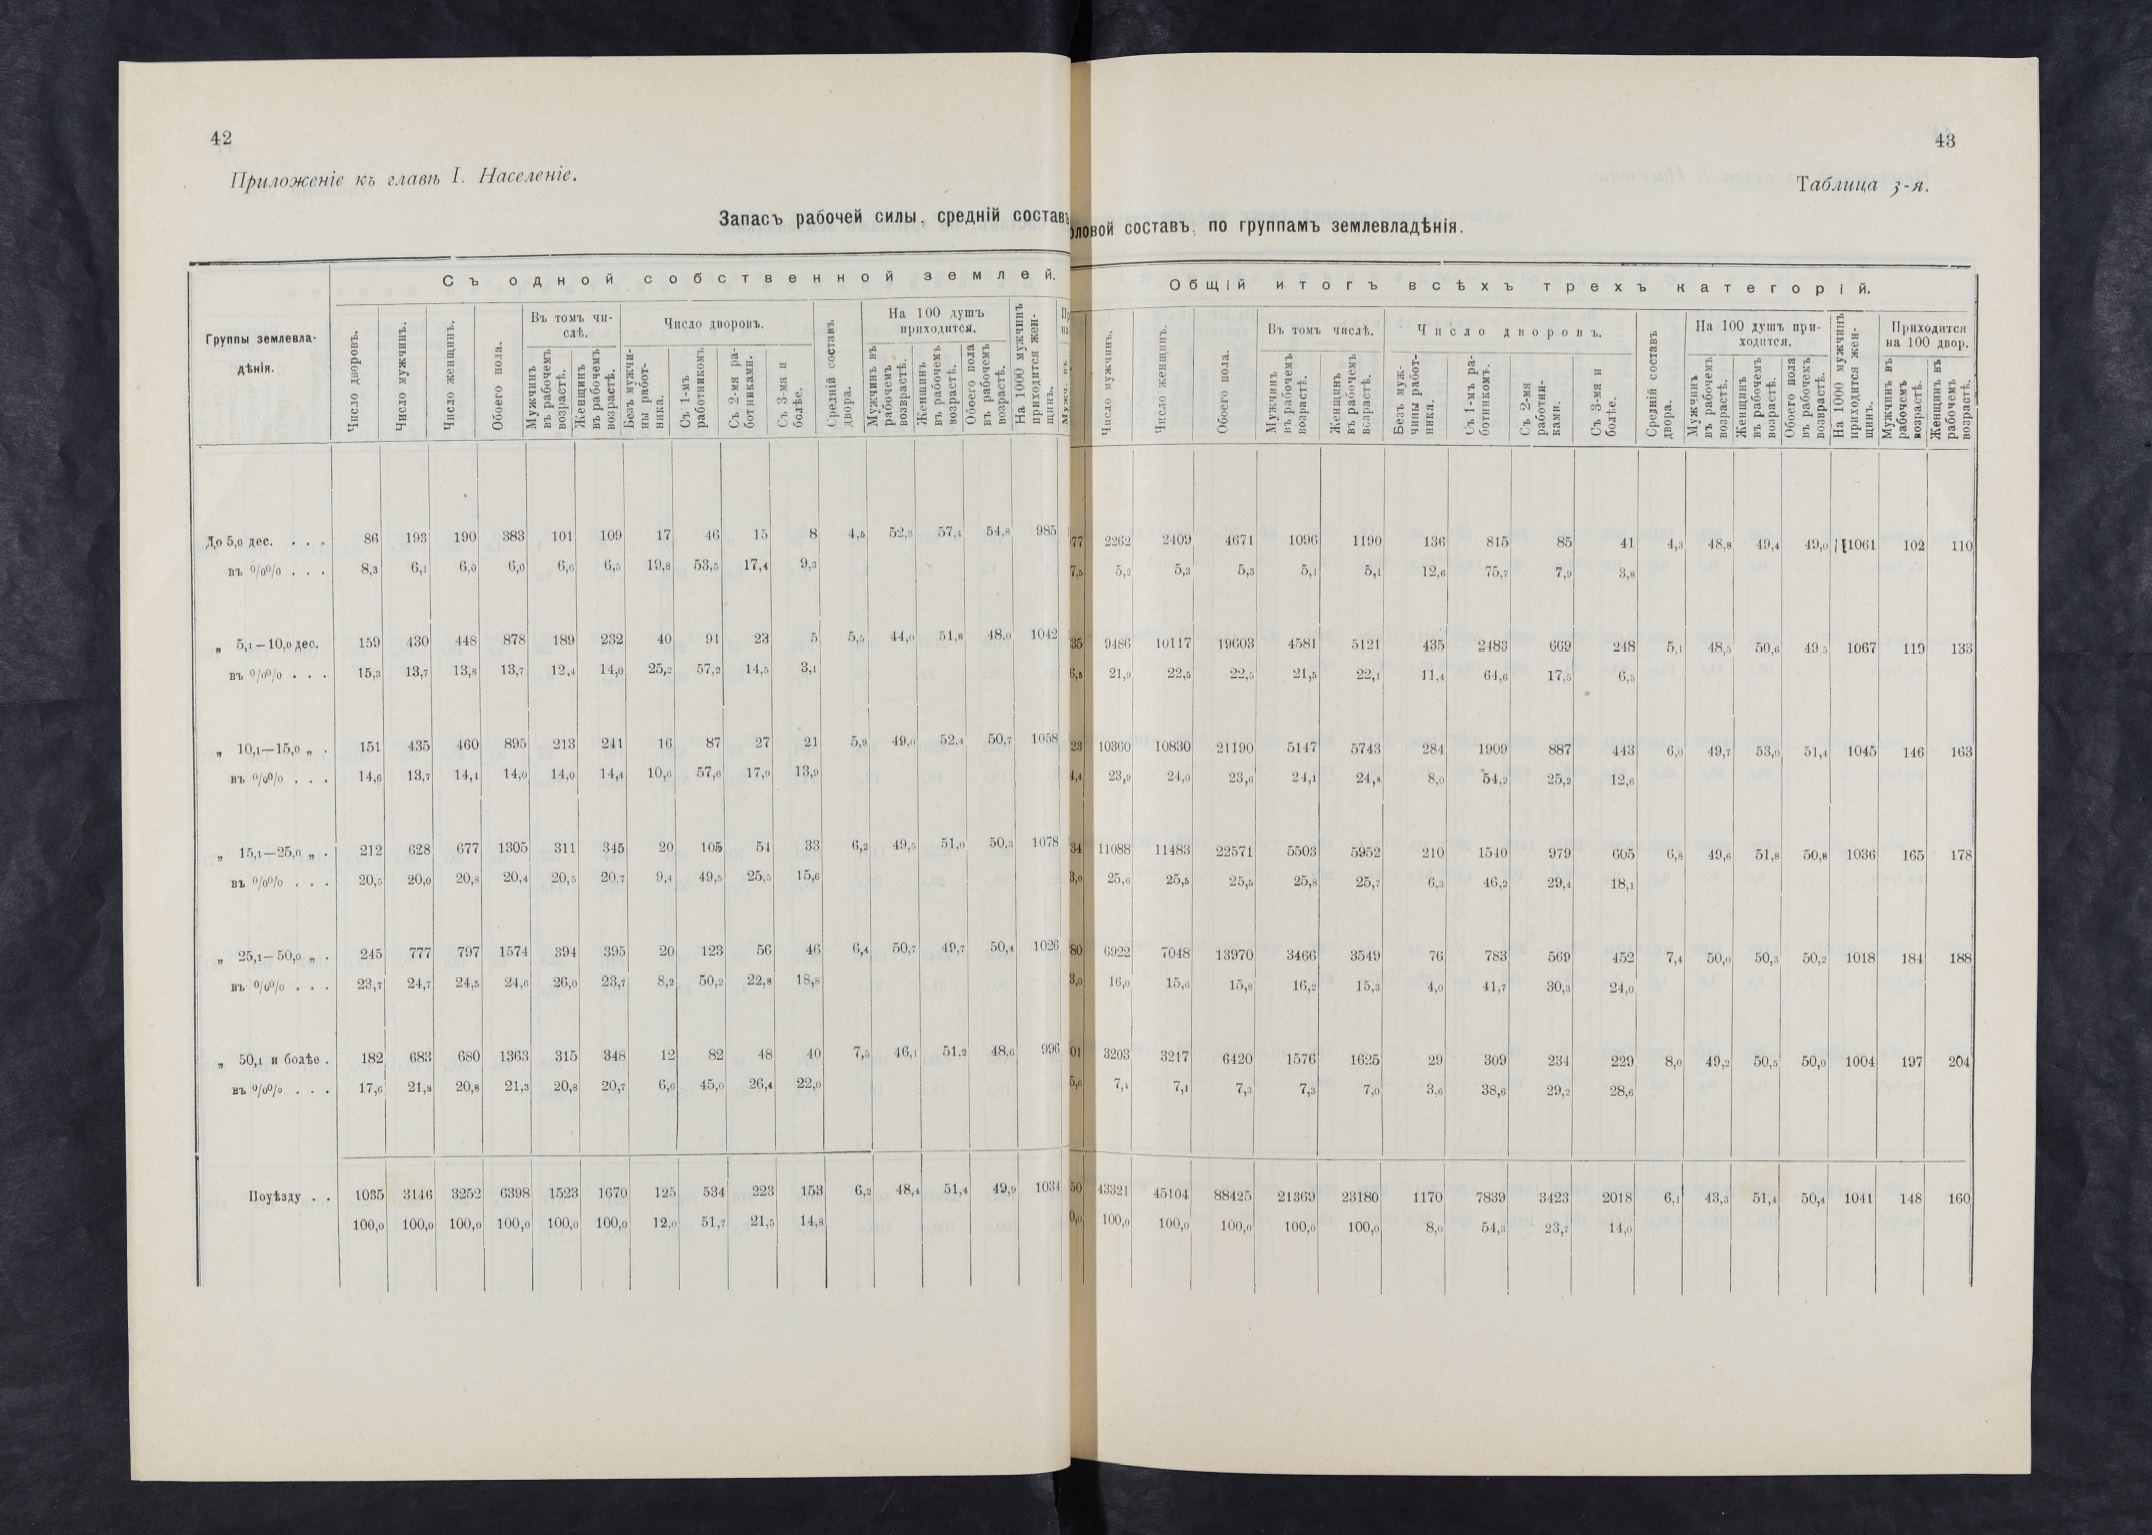 42
Приложеніе къ главѣ I. Населеніе.
Запасъ рабочей силы, средній составъ
Группы землевла-
дѣнія.
Съ одной собственной землей.
Число дворовъ.
Число мужчинъ.
Число женщинъ.
Обоего пола.
Въ томъ чи-
слѣ.
Мужчинъ
въ рабочемъ
возрастѣ.
Женщинъ
въ рабочемъ
возрастѣ.
Число дворовъ.
Безъ мужчи-
ны работ-
ника.
Съ 1-мъ
работникомъ
Съ 2-мя ра-
ботниками.
Съ 3-мя и
болѣе.
Средній составъ
двора.
На 100 душъ
приходится.
Мужчинъ въ
рабочемъ
возврастѣ.
Женщинъ
въ рабочемъ
возрастѣ.
Обоего пола
въ рабочемъ
возрастѣ.
На 1000 мужчинъ
приходится жен-
щинъ.
До 5,0 дес. . . . 86 193 190 383 101 109 17 46 15 8 4,5 52,3 57,4 54,8 985
въ % % . . . 8,3 6,1 6,0 6,0 6,6 6,5 19,8 53,5 17,4 9,3
„ 5,1—10,0 дес. 159 430 448 878 189 232 40 91 23 5 5,5 44,0 51,8 48,0 1042
въ % % . . . 15,3 13,7 13,8 13,7 12,4 14,0 25,2 57,2 14,5 3,1
„ 10,1—15,0 „ . 151 435 460 895 213 241 16 87 27 21 5,9 49,0 52,4 50,7 1058
въ % % . . . 14,6 13,7 14,1 14,0 14,0 14,4 10,6 57,6 17,9 13,9
„ 15,1—25,0 „ . 212 628 677 1305 311 345 20 105 54 33 6,2 49,5 51,0 50,3 1078
въ % % . . . 20,5 20,0 20,8 20,4 20,5 20,7 9,4 49,5 25,5 15,6
„ 25,1—50,0 „ . 245 777 797 1574 394 395 20 123 56 46 6,4 50,7 49,7 50,4 1026
въ % % . . . 23,7 24,7 24,5 24,6 26,0 23,7 8,2 50,2 22,8 18,8
„ 50,1 и болѣе . 182 683 680 1363 315 348 12 82 48 40 7,5 46,1 51,2 48,6 996
въ % % . . . 17,6 21,8 20,8 21,3 20,8 20,7 6,6 45,0 26,4 22,0
Поуѣзду . . 1035 3146 3252 6398 1523 1670 125 534 223 153 6,2 48,4 51,4 49,9 1034
100,0 100,0 100,0 100,0 100,0 100,0 12,0 51,7 21,5 14,8
43
Таблица 3-я.
оловой составъ, по группамъ землевладѣнія.
Общій итогъ всѣхъ трехъ категорій.
Число мужчинъ.
Число женщинъ.
Обоего пола.
Въ томъ числѣ.
Мужчинъ
въ рабочемъ
возрастѣ.
Женщинъ
въ рабочемъ
возрастѣ.
Число дворовъ.
Безъ муж-
чины работ-
ника.
Съ 1-мъ ра-
ботникомъ.
Съ 2-мя
работни-
ками.
Съ 3-мя и
болѣе.
Средній составъ
двора.
На 100 душъ при-
ходится.
Мужчинъ
въ рабочемъ
возрастѣ.
Женщинъ
въ рабочемъ
возрастѣ.
Обоего пола
въ рабочемъ
возврастѣ.
На 1000 мужчинъ
приходится жен-
щинъ.
Приходится
на 100 двор.
Мужчинъ въ
рабочемъ
возрастѣ.
Женщинъ въ
рабочемъ
возрастѣ.
77 2262 2409 4671 1096 1190 136 815 85 41 4,3 48,8 49,4 49,0 1061 102 110
7,5 5,2 5,3 5,3 5,1 5,1 12,6 75,7 7,9 3,8
35 9486 10117 19603 4581 5121 435 2483 669 248 5,1 48,5 50,6 49,5 1067 119 133
6,5 21,9 22,5 22,5 21,5 22,1 11,4 64,6 17,5 6,5
23 10360 10830 21190 5147 5743 284 1909 887 443 6,0 49,7 53,0 51,4 1045 146 163
4,4 23,9 24,0 23,6 24,1 24,8 8,0 54,2 25,2 12,6
34 11088 11483 22571 5503 5952 210 1540 979 605 6,8 49,6 51,8 50,8 1036 165 178
3,0 25,6 25,5 25,5 25,8 25,7 6,3 46,2 29,4 18,1
80 6922 7048 13970 3466 3549 76 783 569 452 7,4 50,0 50,3 50,2 1018 184 188
3,0 16,0 15,6 15,8 16,2 15,3 4,0 41,7 30,3 24,0
01 3203 3217 6420 1576 1625 29 309 234 229 8,0 49,2 50,5 50,0 1004 197 204
5,6 7,4 7,1 7,3 7,3 7,0 3,6 38,6 29,2 28,6
50 43321 45104 88425 21369 23180 1170 7839 3423 2018 6,1 43,3 51,4 50,4 1041 148 160
0,0 100,0 100,0 100,0 100,0 100,0 8,0 54,3 23,7 14,0